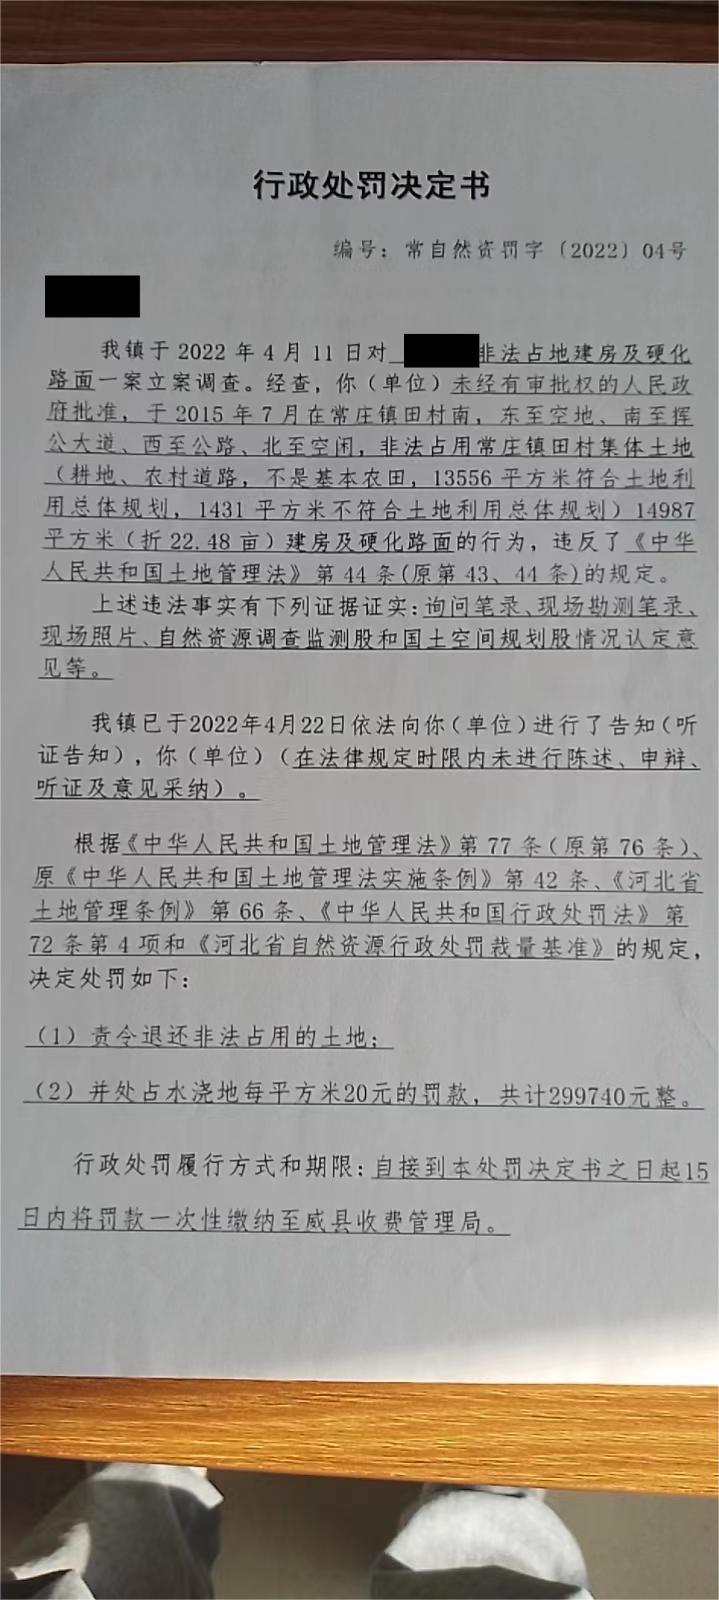 行政处罚决定书
编号：常自然资罚字〔2022〕04号
我镇于 2022 年 4 月 11 日对 非法占地建房及硬化
路面一案立案调查。经查，你（单位）未经有审批权的人民政
府批准，于 2015 年 7 月在常庄镇田村南，东至空地、南至挥
公大道、西至公路、北至空闲，非法占用常庄镇田村集体土地
（耕地、农村道路，不是基本农田，13556 平方米符合土地利
用总体规划，1431 平方米不符合土地利用总体规划）14987
平方米（折 22.48 亩）建房及硬化路面的行为，违反了《中华
人民共和国土地管理法》第 44 条(原第 43、44 条)的规定。
上述违法事实有下列证据证实：询问笔录、现场勘测笔录、
现场照片、自然资源调查监测股和国土空间规划股情况认定意
见等。
我镇已于2022年4月22日依法向你（单位）进行了告知（听
证告知），你（单位）（在法律规定时限内未进行陈述、申辩、
听证及意见采纳）。
根据《中华人民共和国土地管理法》第 77 条（原第 76 条）、
原《中华人民共和国土地管理法实施条例》第 42 条、《河北省
土地管理条例》第 66 条、《中华人民共和国行政处罚法》第
72 条第 4 项和《河北省自然资源行政处罚裁量基准》的规定，
决定处罚如下：
（1）责令退还非法占用的土地；
（2）并处占水浇地每平方米20元的罚款，共计299740元整。
行政处罚履行方式和期限：自接到本处罚决定书之日起15
日内将罚款一次性缴纳至威县收费管理局。